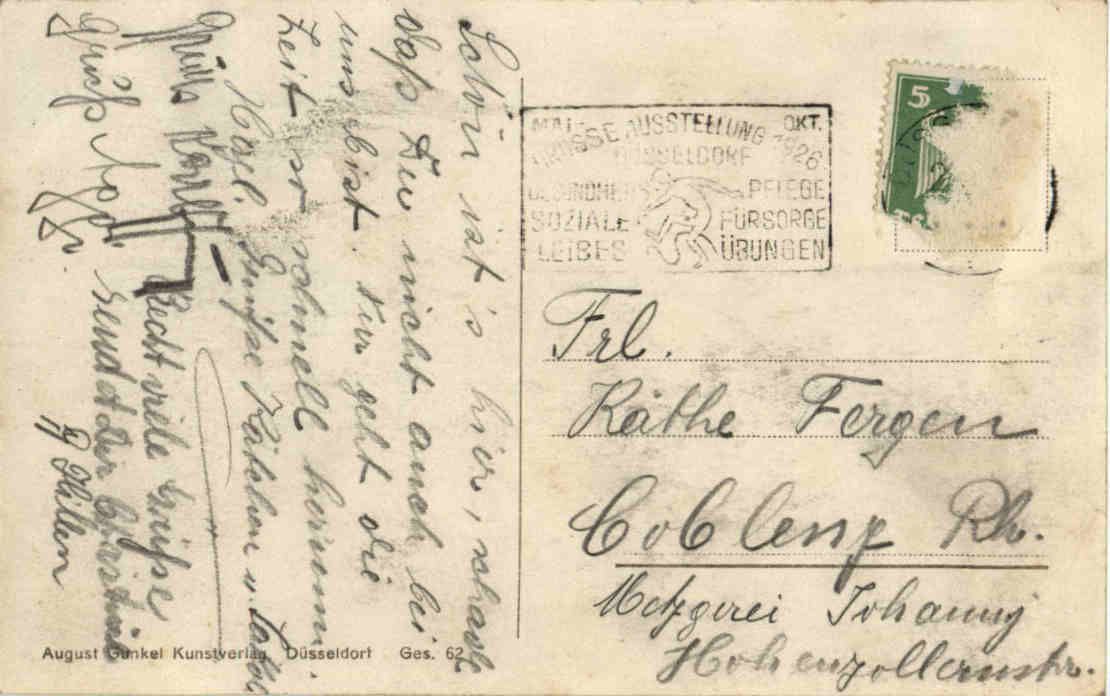 Schön ist's hier, schade
daß Du nicht auch bei
uns bist. Hier geht die
Zeit so schnell herum.
Herzl. Grüße Käthchen u.
Recht viele Grüße
sendet Dir
5
MAI - OKT.
GROSSE AUSSTELLUNG 1926
DÜSSELDORF
GESUNDHEITS PFLEGE
SOZIALE FÜRSORGE
LEIBES ÜBUNGEN
Frl.
Käthe Fergen
Coblenz Rh.
Metzgerei Johanny
Hohenzollernstr.
August Gunkel Kunstverlag, Düsseldorf Ges. 62